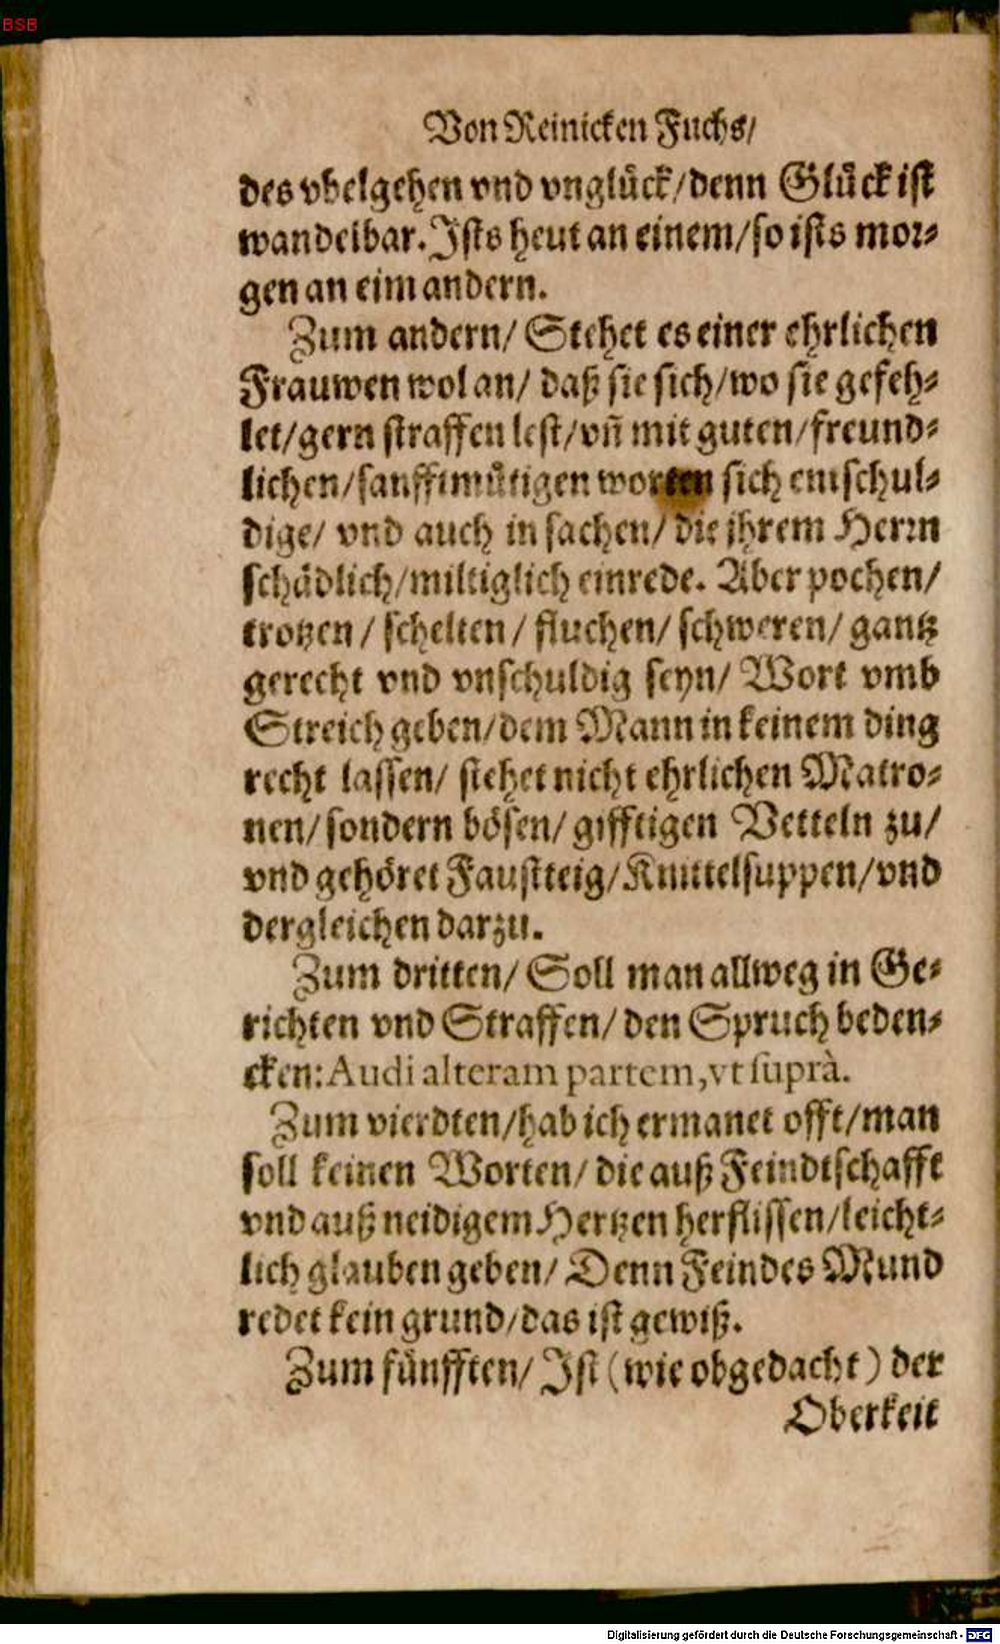 BSB
Von Reinicken Fuchs/
des vbelgehen vnd vnglück/denn Glück ist
wandelbar. Ists heut an einem/so ists mor⸗
gen an eim andern.
Zum andern/ Stehet es einer ehrlichen
Frauwen wol an/ daß sie sich/wo sie gefeh⸗
let/gern straffen lest/vñ mit guten/freund⸗
lichen/sanfftmütigen worten sich entschul⸗
dige/ vnd auch in sachen/ die jhrem Herrn
schädlich/miltiglich einrede. Aber pochen/
trotzen/ schelten/ fluchen/ schweren/ gantz
gerecht vnd vnschuldig seyn/ Wort vmb
Streich geben/dem Mann in keinem ding
recht lassen/ stehet nicht ehrlichen Matro⸗
nen/ sondern bösen/ gifftigen Vetteln zu/
vnd gehöret Faustteig/Knüttelsuppen/vnd
dergleichen darzu.
Zum dritten/ Soll man allweg in Ge⸗
richten vnd Straffen/ den Spruch beden⸗
cken: Audi alteram partem, vt suprà.
Zum vierdten/hab ich ermanet offt/man
soll keinen Worten/ die auß Feindtschafft
vnd auß neidigem Hertzen herflissen/leicht⸗
lich glauben geben/ Denn Feindes Mund
redet kein grund/das ist gewiß.
Zum fünfften/ Ist (wie obgedacht) der
Oberkeit
Digitalisierung gefördert durch die Deutsche Forschungsgemeinschaft - DFG